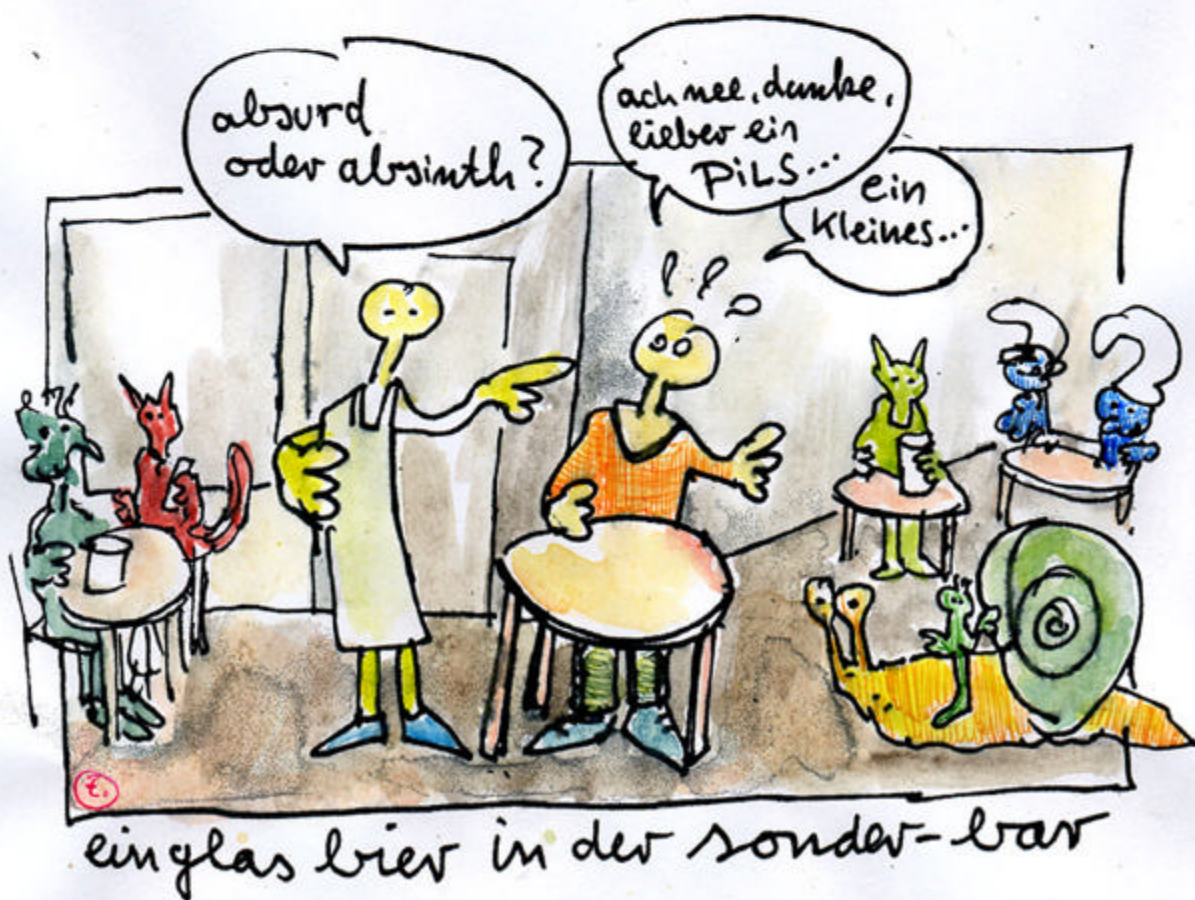 absurd
oder absinth?
ach nee, danke,
lieber ein
PILS...
ein
kleines...
t.
ein glas bier in der sonder-bar